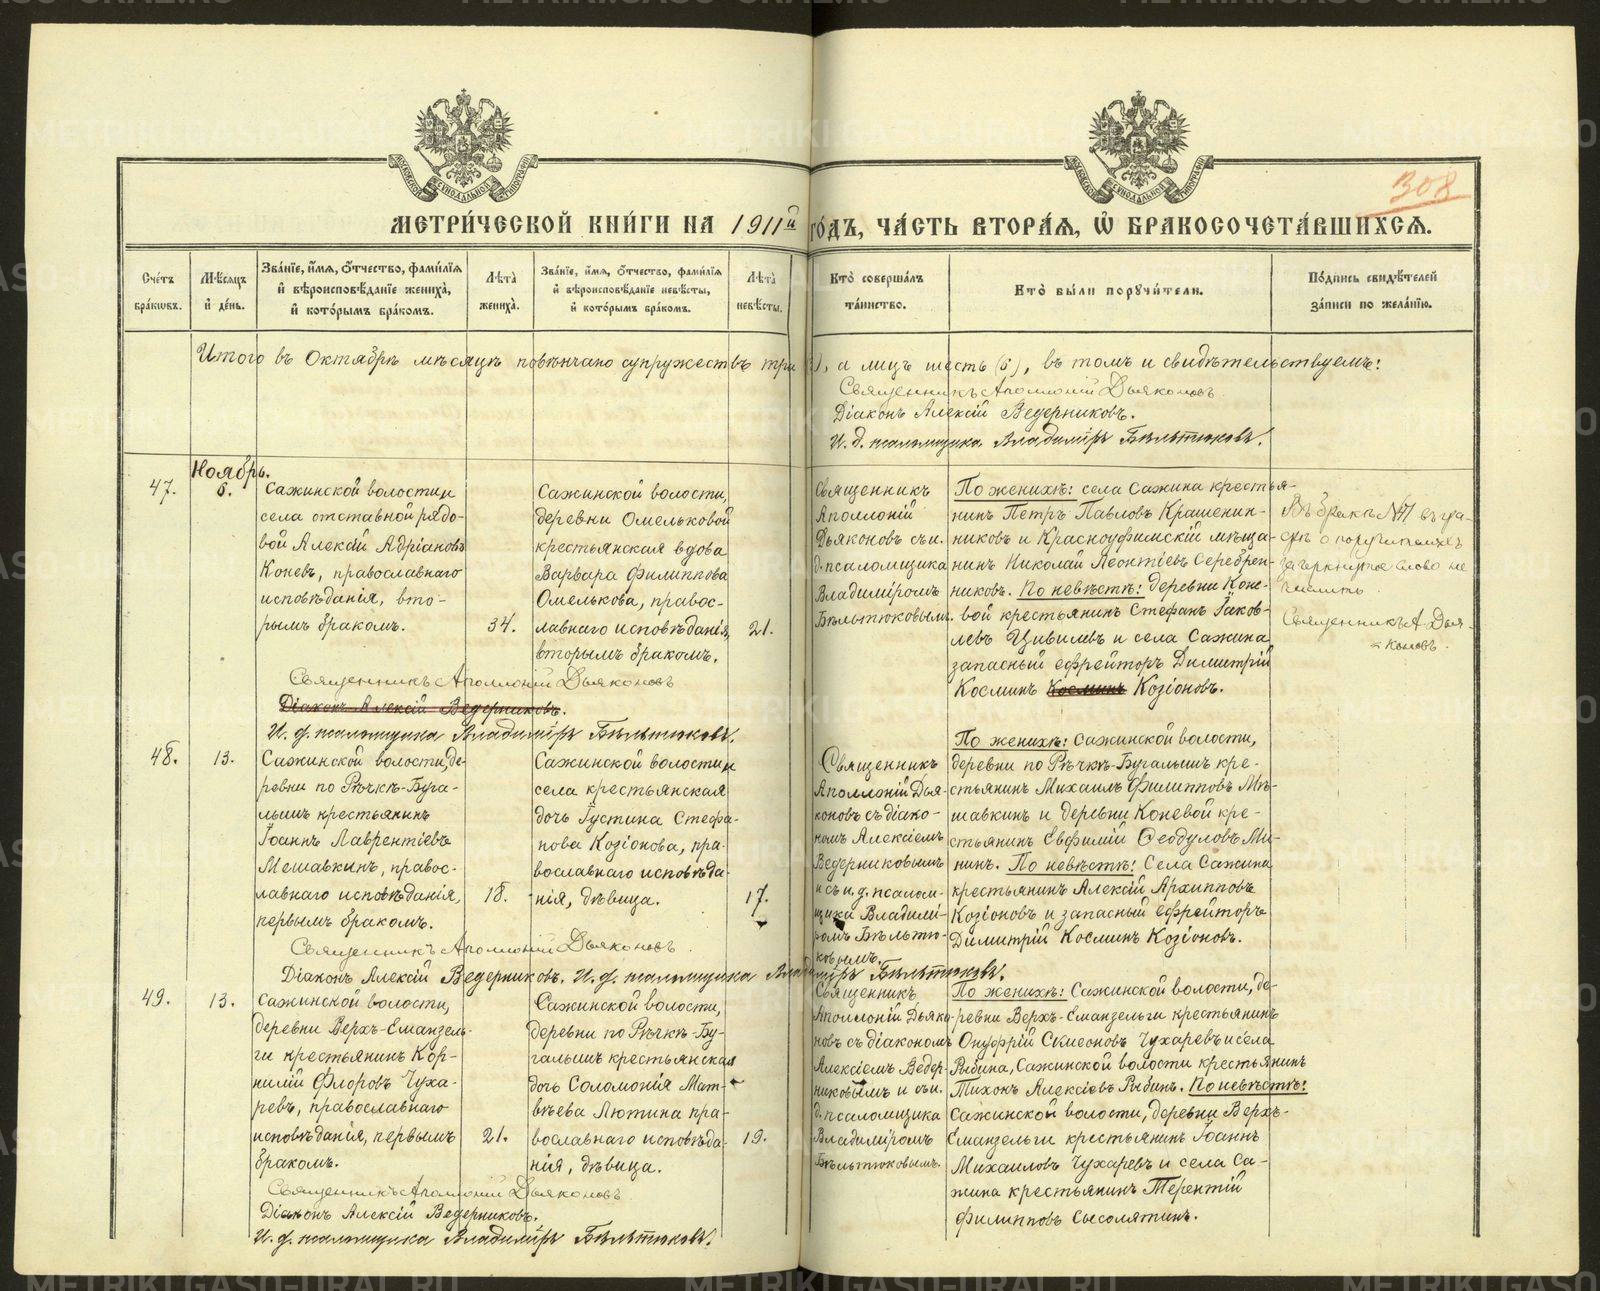 308
МЕТРИ́ЧЕСКОЙ КНИ́ГИ НА 1911й ГО́ДЪ, ЧА́СТЬ ВТОРА́Я, Ѽ БРАКОСОЧЕТА́ВШИХСЯ.
Сче́тъ бра́кωвъ.
Мѣ́сяцъ и҆ де́нь.
Зва́нїе, и҆́мя, ѻ҆́тчество, фами́лїя и҆ вѣроисповѣ́данїе жениха̀, и҆ кото́рымъ бра́комъ.
Лѣ́та жениха̀.
Зва́нїе, и҆́мя, ѻ҆́тчество, фами́лїя и҆ вѣроисповѣ́данїе невѣ́сты, и҆ кото́рымъ бра́комъ.
Лѣ́та невѣ́сты.
Кто̀ соверша́лъ та́инство.
Кто̀ бы́ли порꙋчи́тели.
По́дпись свидѣ́телей за́писи по жела́нїю.
Итого въ Октябрѣ мѣсяцѣ повѣнчано супружествъ три (3), а лицъ шесть (6), въ томъ и свидѣтельствуемъ:
Священникъ Аполлоній Дьяконовъ
Діаконъ Алексій Ведерниковъ.
И. д. псаломщика Владиміръ Бѣльтюковъ.
Ноябрь.
47.
6.
Сажинской волости и
села отставной рядо-
вой Алексій Адріановъ
Коневъ, православнаго
исповѣданія, вто-
рымъ бракомъ.
34.
Сажинской волости,
деревни Омельковой
крестьянская вдова
Варвара Филиппова
Омелькова, правос-
лавнаго исповѣданія,
вторымъ бракомъ.
21.
Священникъ
Аполлоній
Дьяконовъ съ и.
д. псаломщика
Владиміромъ
Бѣльтюковымъ.
По женихѣ: села Сажина кресть-
янинъ Петръ Павловъ Крашенин-
никовъ и Красноуфимскій мѣща-
нинъ Николай Леонтіевъ Серебрен-
никовъ. По невѣстѣ: деревни Коне-
вой крестьянинъ Стефанъ Іаков-
левъ Цивилевъ и села Сажина
запасный ефрейторъ Димитрій
Косминъ Косминъ Козіоновъ.
Въ бракѣ № 47 въ гра-
фѣ о поручителяхъ
зачеркнутое слово не
читать.
Священникъ А. Дья-
коновъ.
Священникъ Аполлоній Дьяконовъ
Діаконъ Алексій Ведерниковъ.
И. д. псаломщика Владиміръ Бѣльтюковъ.
48.
13.
Сажинской волости, де-
ревни по Рѣчкѣ-Буга-
лышъ крестьянинъ
Іоаннъ Лаврентіевъ
Мешавкинъ, правос-
лавнаго исповѣданія,
первымъ бракомъ.
18.
Сажинской волости и
села крестьянская
дочь Іустина Стефа-
нова Козіонова, пра-
вославнаго исповѣда-
нія, дѣвица.
17.
Священникъ
Аполлоній Дья-
коновъ съ діако-
номъ Алексіемъ
Ведерниковымъ
и съ и. д. псалом-
щика Владимі-
ромъ Бѣльтю-
ковымъ.
По женихѣ: Сажинской волости,
деревни по Рѣчкѣ-Бугалышъ кре-
стьянинъ Михаилъ Филипповъ Мѣ-
шавкинъ и деревни Коневой кре-
стьянинъ Евфимій Ѳеодуловъ Ми-
нинъ. По невѣстѣ: Села Сажина
крестьянинъ Алексій Архипповъ
Козіоновъ и запасный ефрейторъ
Димитрій Косминъ Козіоновъ.
Священникъ Аполлоній Дьяконовъ.
Діаконъ Алексій Ведерниковъ. И. д. псаломщика Владиміръ Бѣльтюковъ.
49.
13.
Сажинской волости,
деревни Верхъ-Еманзель-
ги крестьянинъ Кор-
нилій Флоровъ Чуха-
ревъ, православнаго
исповѣданія, первымъ
бракомъ.
21.
Сажинской волости,
деревни по Рѣчкѣ-Бу-
галышъ крестьянская
дочь Соломонія Мат-
вѣева Лютина пра-
вославнаго исповѣда-
нія, дѣвица.
19.
Священникъ
Аполлоній Дьяко-
новъ съ діакономъ
Алексіемъ Ведер-
никовымъ и съ и.
д. псаломщика
Владиміромъ
Бѣльтюковымъ.
По женихѣ: Сажинской волости, де-
ревни Верхъ-Еманзельги крестьянинъ
Онуфрій Симеоновъ Чухаревъ и села
Рябина, Сажинской волости крестьянинъ
Тихонъ Алексіевъ Рябинъ. По невѣстѣ:
Сажинской волости, деревни Верхъ-
Еманзельги крестьянинъ Іоаннъ
Михаиловъ Чухаревъ и села Са-
жина крестьянинъ Терентій
Филипповъ Сысолятинъ.
Священникъ Аполлоній Дьяконовъ.
Діаконъ Алексій Ведерниковъ.
И. д. псаломщика Владиміръ Бѣльтюковъ.
METRIKI.GASO-URAL.RU